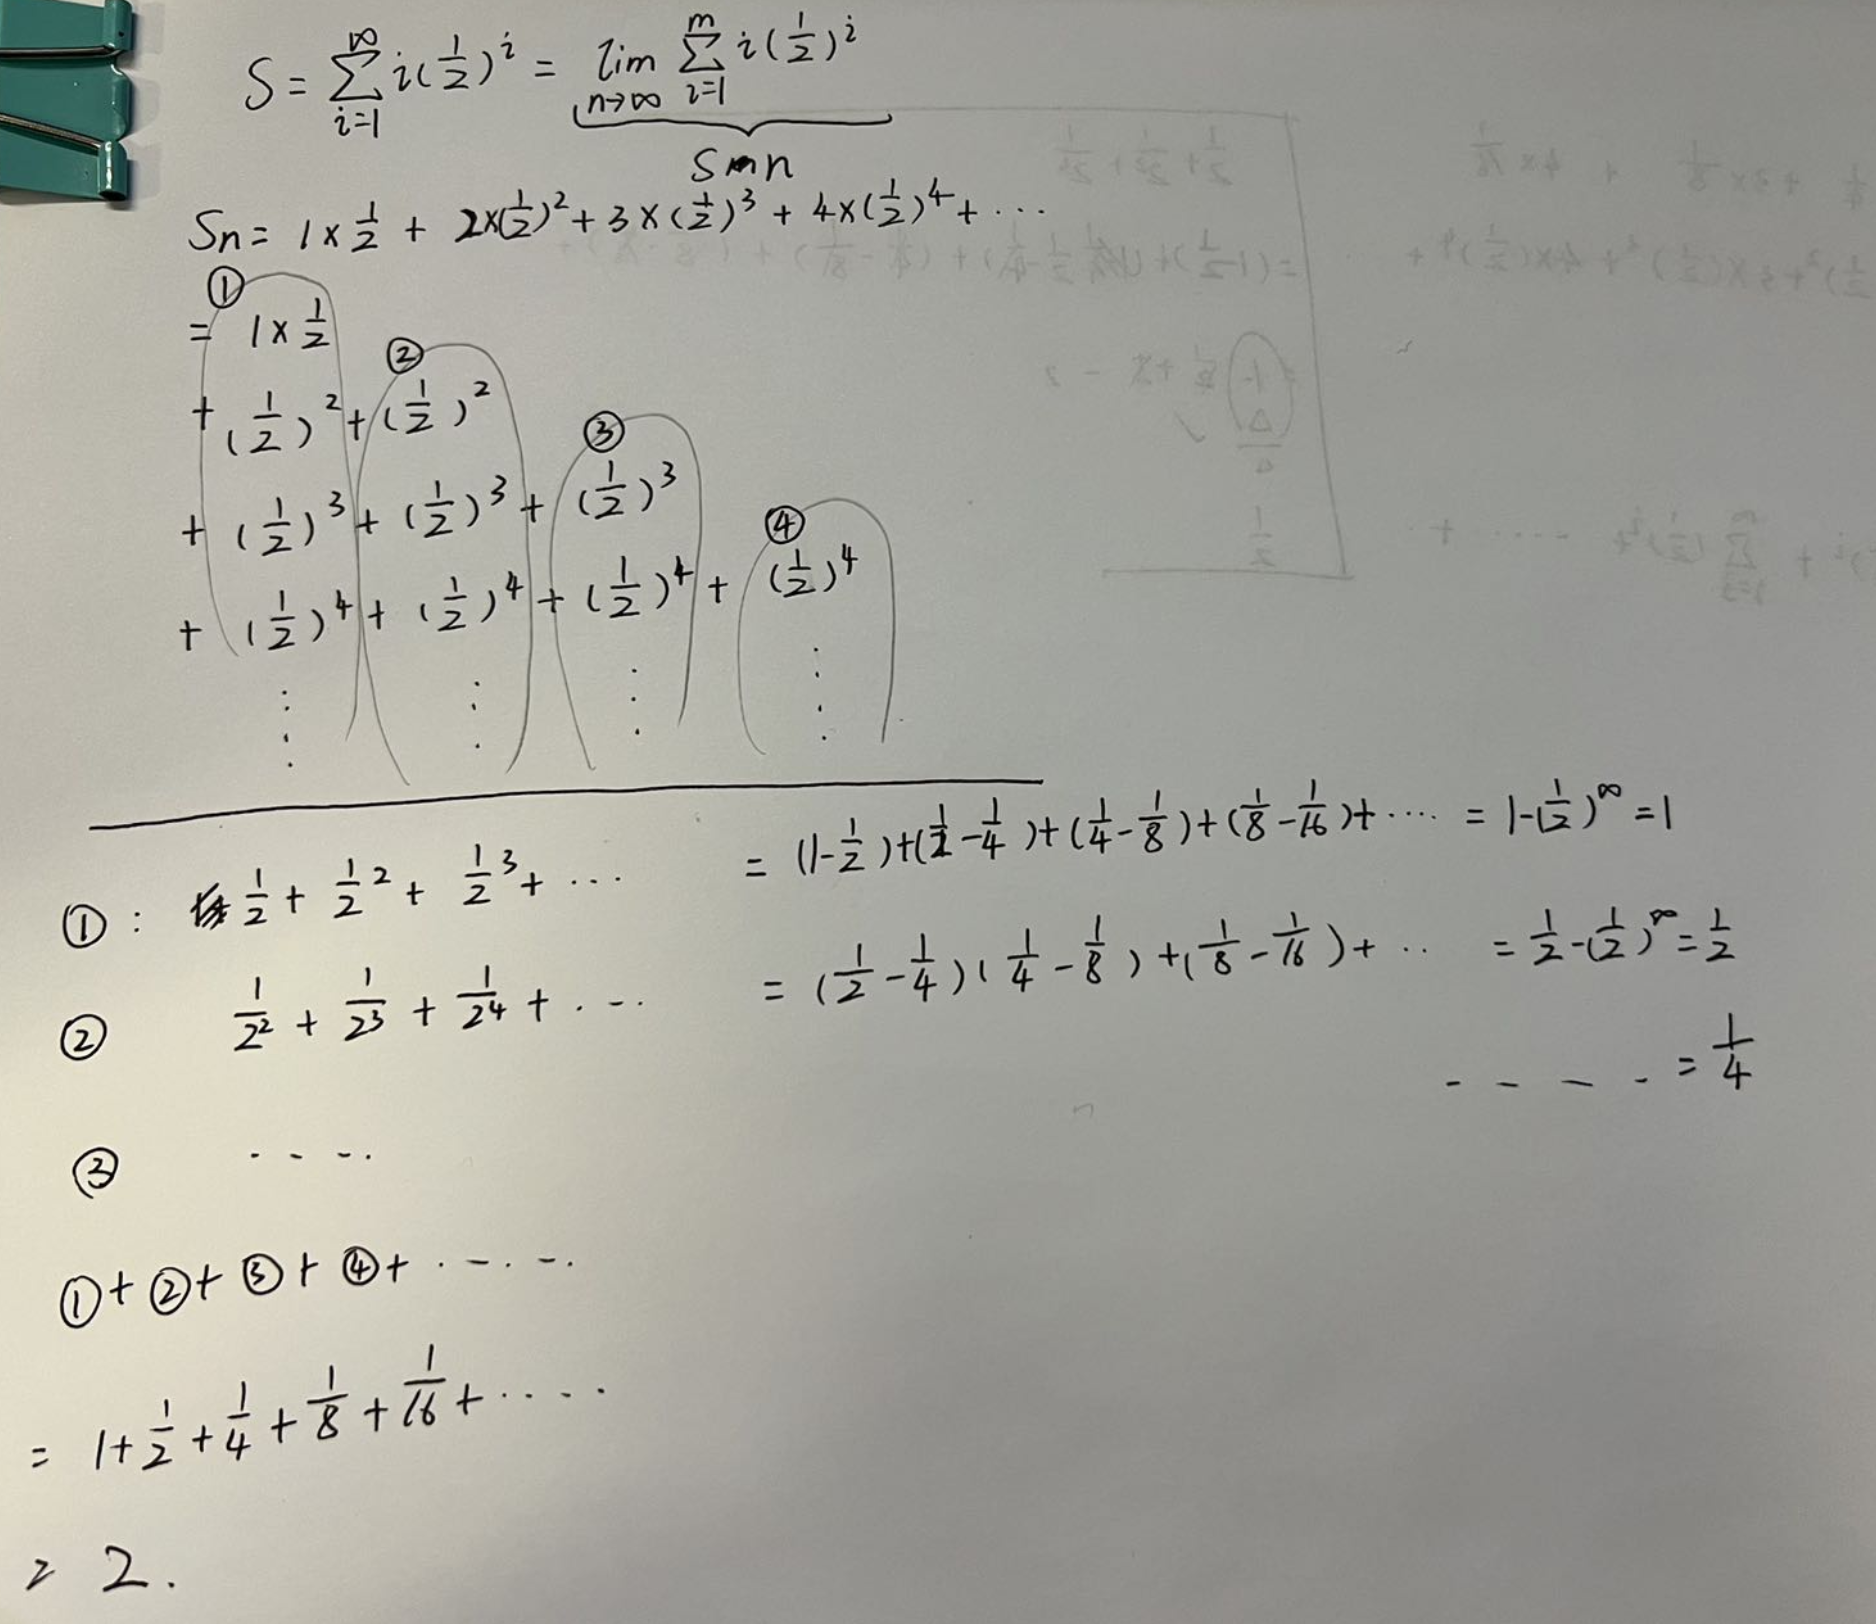 S = ∑_{i=1}^{∞} i(1/2)^i = lim_{n→∞} ∑_{i=1}^{m} i(1/2)^i
Sn
Sn = 1×1/2 + 2×(1/2)^2 + 3×(1/2)^3 + 4×(1/2)^4 + ...
①
= 1×1/2
②
+ (1/2)^2 + (1/2)^2
③
+ (1/2)^3 + (1/2)^3 + (1/2)^3
④
+ (1/2)^4 + (1/2)^4 + (1/2)^4 + (1/2)^4
⋮ ⋮ ⋮ ⋮
①: 1/2 + 1/2^2 + 1/2^3 + ... = (1-1/2)+(1/2-1/4)+(1/4-1/8)+(1/8-1/16)+.... = 1-(1/2)^∞ = 1
② 1/2^2 + 1/2^3 + 1/2^4 + .... = (1/2-1/4)(1/4-1/8)+(1/8-1/16)+.. = 1/2-(1/2)^∞ = 1/2
③ .... .... = 1/4
①+②+③+④+......
= 1+1/2+1/4+1/8+1/16+....
= 2.